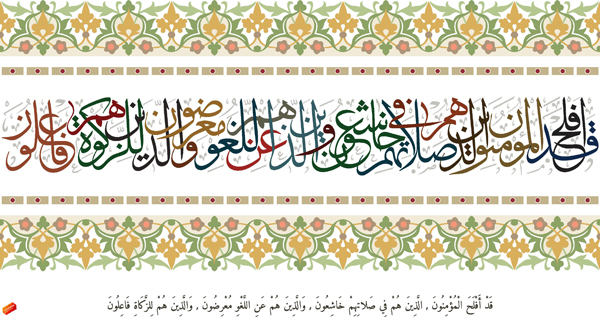 قد أفلح المؤمنون الذين هم في صلاتهم خاشعون والذين هم عن اللغو معرضون والذين هم للزكوة فاعلون
قَدْ أَفْلَحَ الْمُؤْمِنُونَ , الَّذِينَ هُمْ فِي صَلَاتِهِمْ خَاشِعُونَ , وَالَّذِينَ هُمْ عَنِ اللَّغْوِ مُعْرِضُونَ , وَالَّذِينَ هُمْ لِلزَّكَاةِ فَاعِلُونَ